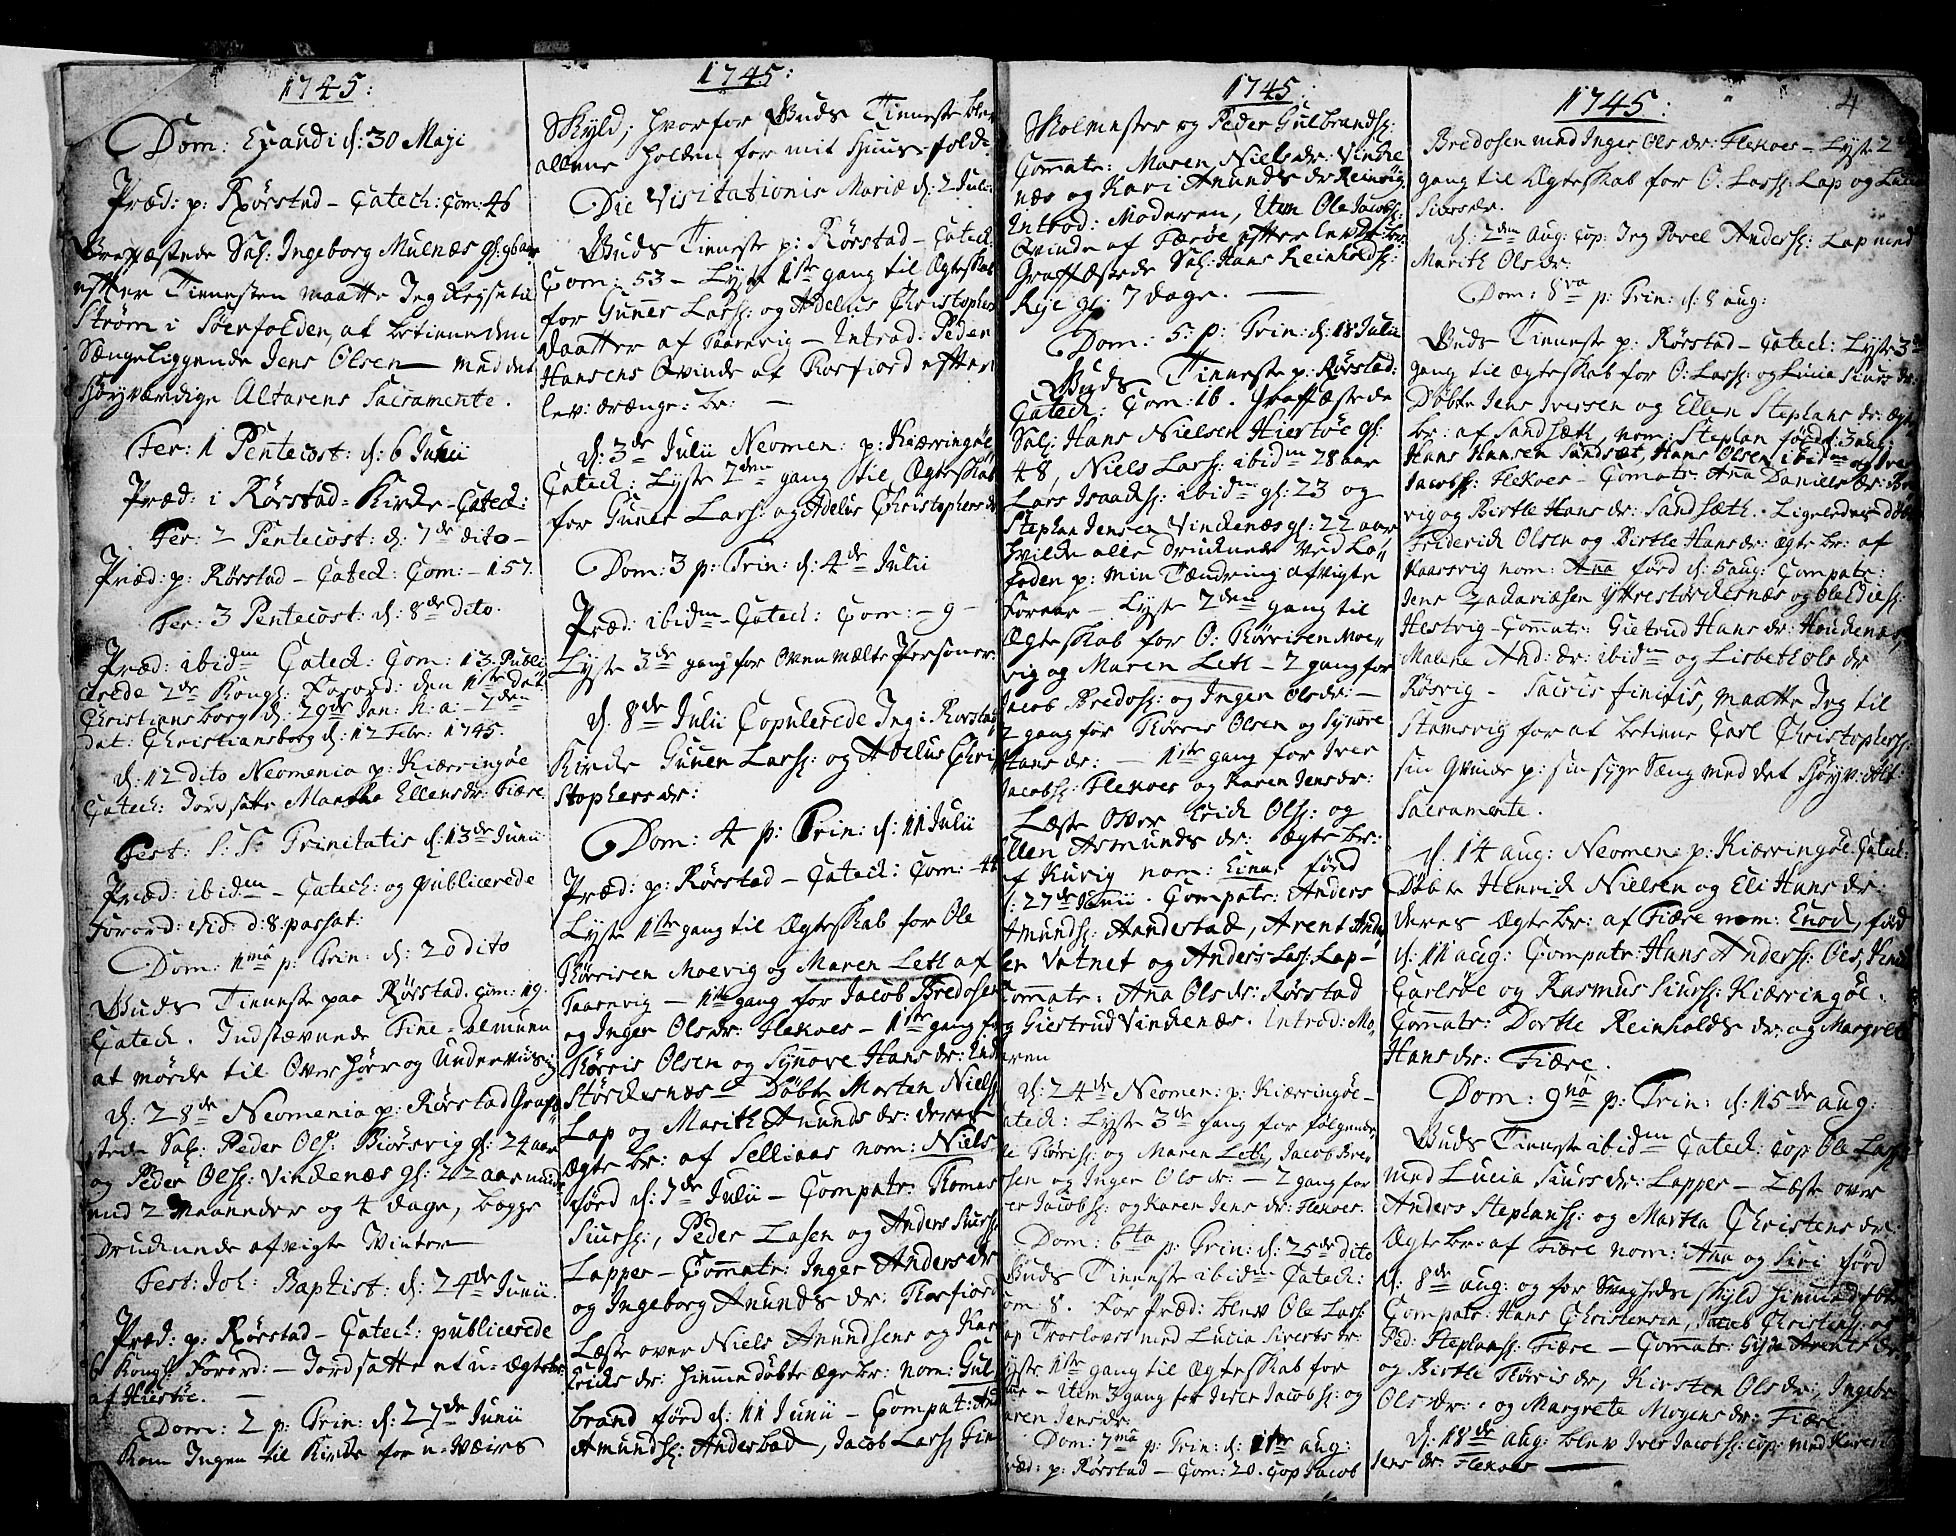 1745:
Dom: Exaudi d: 30 Maji
Præd: p: Rörstad - Catech: Com: 46
Graffæstede Sal: Ingeborg Mulnæs gl: 96 aar
efter Tienesten maatte Jeg Reyse til
Ström i Söerfolden, at betiene den
Sængeliggende Jens Olsen - med det
Höyværdige Altarens Sacramente.
Fer: 1 Pentecost: d: 6 Junii
Præd: i Rörstad-Kirke - Catech:
Fer: 2 Pentecost: d: 7de dito -
Præd: p: Rörstad - Catech: Com: - 157.
Fer: 3 Pentecost: d: 8de dito.
Præd: ibidm Catech: Com: 13. Publi
cerede 2de Kongl: Forord: den 1ste dat
Christiansborg d: 29de Jan: h: a: - 2den
dat: Christiansborg d: 12 Febr: 1745.
d: 12 dito Neomenia p: Kiærringöe
Catech: Jordsatte Maritha Ellensdr: Fiære.
Fest: S: S: Trinitatis d: 13de Junii
Præd: ibidm - Catech: og publicerede
Forord: vid: d: 8 passat:
Dom: 1mâ p: Trin: d: 20 dito
Guds Tieneste paa Rörstad. Com: 19.
Catech. Indstævnede Fine-Almuen
at möde til Overhör og Underviisng
d: 28de Neomenia p: Rörstad Graffæ
stede Sal: Peder Ols: Biörsvig gl: 24 aar
og Peder Olss: Vindenæs gl: 22 aar
2 Maaneder og 4 dage, begge
Druknede afvigte Vinter
Fest: Joh: Baptist: d: 24de Junii.
Præd: p: Rörstad - Catech: publicerede
6 Kongl: Forord: - Jordsatte et u-ægte br:
af Hiertöe.
Dom: 2 p: Trin: d: 27de Junii
Kom Ingen til Kirke for u-Væirs
1745:
Skyld, hvorfor Guds Tieneste blev
allene holden for mit Huus-folk.
Die Visitationis Mariæ d: 2 Julii
Guds Tieneste p: Rörstad - Catech:
Com: 53 - Lyste 1ste gang til Ægteskab
for Guner Larss: og Adelus Christophers
daatter af Taarnvig - Introd: Peder
Hansens Qvinde af Korsfiord efter
lev: drænge: br: -
d: 3de Julii Neomen: p: Kiærringöe
Catech: Lyste 2den gang til Ægteskab
for Guner Larss: og Adelus Christophersdr
Dom: 3 p: Trin: d: 4de Julii
Præd: ibidm - Catech: Com: - 9 -
Lyste 3de gang for Ovenmælte Personer
d: 8de Julii Copulerede Jeg i Rorstad
Kirke Guner Larss: og Adelus Chri
stophersdr:
Dom: 4 p: Trin: d: 11 Julii
Præd: p: Rörstad - Catech: Com: - 44
Lyste 1ste gang til Ægteskab for Ole
Törrisen Moevig og Maren Letl af
Taarnvig - 1ste gang for Jacob Bredosen
og Inger Olsdr: Flekoes - 1ste gang for
Törris Olsen og Synove Hansdr: Ind
Störkersnæs - Döbte Morten Nielss:
Lap og Marith Anundsdr: deres
ægte br: af Selliaas nom: Niels
förd d: 7de Julii - Compatr: Tomas
Siurss:, Peder Lasen og Anders Siurss:
Lapper - Comatr: Inger Andersdr
og Ingeborg Anundsdr: Korsfiord
Læste over Niels Anundsens og Kar
Eriksdr: hiemmedöbte ægte br: nom: Gul
brand förd d: 11 Junii - Compat: And
Amundss: Anderbad, Jacob Larss: Fin
1745:
Skolmester og Peder Gulbrandss:
Comatr: Maren Nielsdr: Vinke
næs og Kari Anundsdr Reinsvig
Introd: Moderen, Item Ole Jacobss:
Qvinde af Færöe efter lev: br:
Graffæstede Sal: Hans Reinholdss:
Kije gl: 7 dage. -
Dom: 5: p: Trin: d: 18 Julii
Guds Tieneste p: Rörstad:
Catech: Com: 16. Graffæstede
Sal: Hans Nielsen Hiertöe gl:
48, Niels Larss: ibidm 28 aar
Lars Isaachss: ibidm gl: 23 og
Stephan Jensen Vindenæs gl: 22 aar
hvilke alle druknede ved Lo-
foden p: min Fændring afvigte
Foraar - Lyste 2den gang til
Ægteskab for O: Törrisen Moe-
vig og Maren Letl - 2 gang for
Jacob Bredoss: og Inger Olsdr: -
2 gang for Törris Olsen og Synöve
Hansdr: - 1ste gang for Iver
Jacobss: Flekoes og Karen Jensdr:
Læste Over Erich Olss: og
Ellen Asmundsdr: ægte br:
af Kuvig nom: Einar förd
d: 27de Junii. Compatr: Anders
Amundss: Aanderstad, Arent
Vatnet og Anders Lass: Lap -
Comatr: Ana Olsdr: Rörstad
og Giertrud Vindenæs. Introd: Mo-
deren
d: 24de Neomen: p: Kiærringöe -
Catech: Lyste 3de gang for fölgende
Ole Törriss: og Maren Letl, Jacob Bre
dosen og Inger Olsdr: - 2 gang for
Iver Jacobss: og Karen Jensdr: Flekoes.
Dom: 6ta p: Trin: d: 25de dito
Guds Tieneste ibidm Catech:
Com: 8. For Præd: blev Ole Larss:
Lap Troelovet med Lucia Sivertsdr:
Lyste 1ste gang til Ægteskab for
- Item 3 gang for Iver Jacobss: og
Karen Jensdr:
Dom: 7ma p: Trin: d: 1ste aug:
Præd: p: Rörstad - Com: 20. Cop Jacob
1745:
4
Bredosen med Inger Olsdr: Flekoes - Lyste 2den
gang til Ægteskab for O: Larss: Lap og Lucia
Siversdr.
d: 2den Aug: Cop: Jeg Povel Anderss: Lap med
Marith Olsdr:
Dom: 8va p: Trin: d: 8 aug:
Guds Tieneste p: Rörstad - Catech: Lyste 3de
gang til ægteskab for O: Larss: og Lucia Siursdr:
Döbte Jens Iversen og Ellen Stephansdr: ægte
br: af Sandsæth, nom: Stephan förd d: 3 aug:
Hans Hansen Sandsæt, Hans Olsen ibidm og Iver
Jacobss: Flekoes - Comatr: Ana Danielsdr:
vig og Birtle Hansdr: Sandsæth. Ligeledes döbt
Friderich Olsen og Birtle Hansdr: ægte br: af
Kaarsvig nom: Ana förd d: 5 aug: Compatr:
Jens Zachariæsen Yttrestörkersnæs og
Hestvig - Comatr: Gietrud Hansdr:
Malene And:dr: ibidm og Lisbeth Olsdr
Rösvig - Sacris finitis, maatte Jeg til
Stemsvig for at betiene Carl Christopherss:
sin Qvinde p: sin syge Sæng med det Höyv: Alt:
Sacramente.
d: 14 aug: Neomen: p: Kiærringöe. Catech:
Döbte Henrich Nielsen og Eli Hansdr:
deres ægte br: af Fiære nom: Enoch, förd
d: 11 aug: Compatr: Hans Anderss: Oes,
Carlsöe og Rasmus Siurss: Kiærringöe.
Comatr: Dorthe Reinholdsdr: og Margrete
Hansdr: Fiære.
Dom: 9nâ p: Trin: d: 15de aug:
Guds Tieneste ibidm Catech: Cop Ole Larss:
med Lucia Siursdr: Lapper - Læste over
Anders Stephanss: og Martha Christensdr:
Ægte br: af Fiære nom: Ana og Siri förd
d: 8de aug: og for Svagheds skyld hiemmedöbte
Compatr: Hans Christensen, Jacob Christenss: og
Ped: Stephanss: Fiære - Comatr: Giske Arentsdr:
og Birtle Törrisdr, Kirsten Olsdr:, Ingebr:
Olsdr: og Margrete Mogensdr: Fiære
d: 18de aug: blev Iver Jacobss: cop: med Karen
Jensdr: Flekoes -